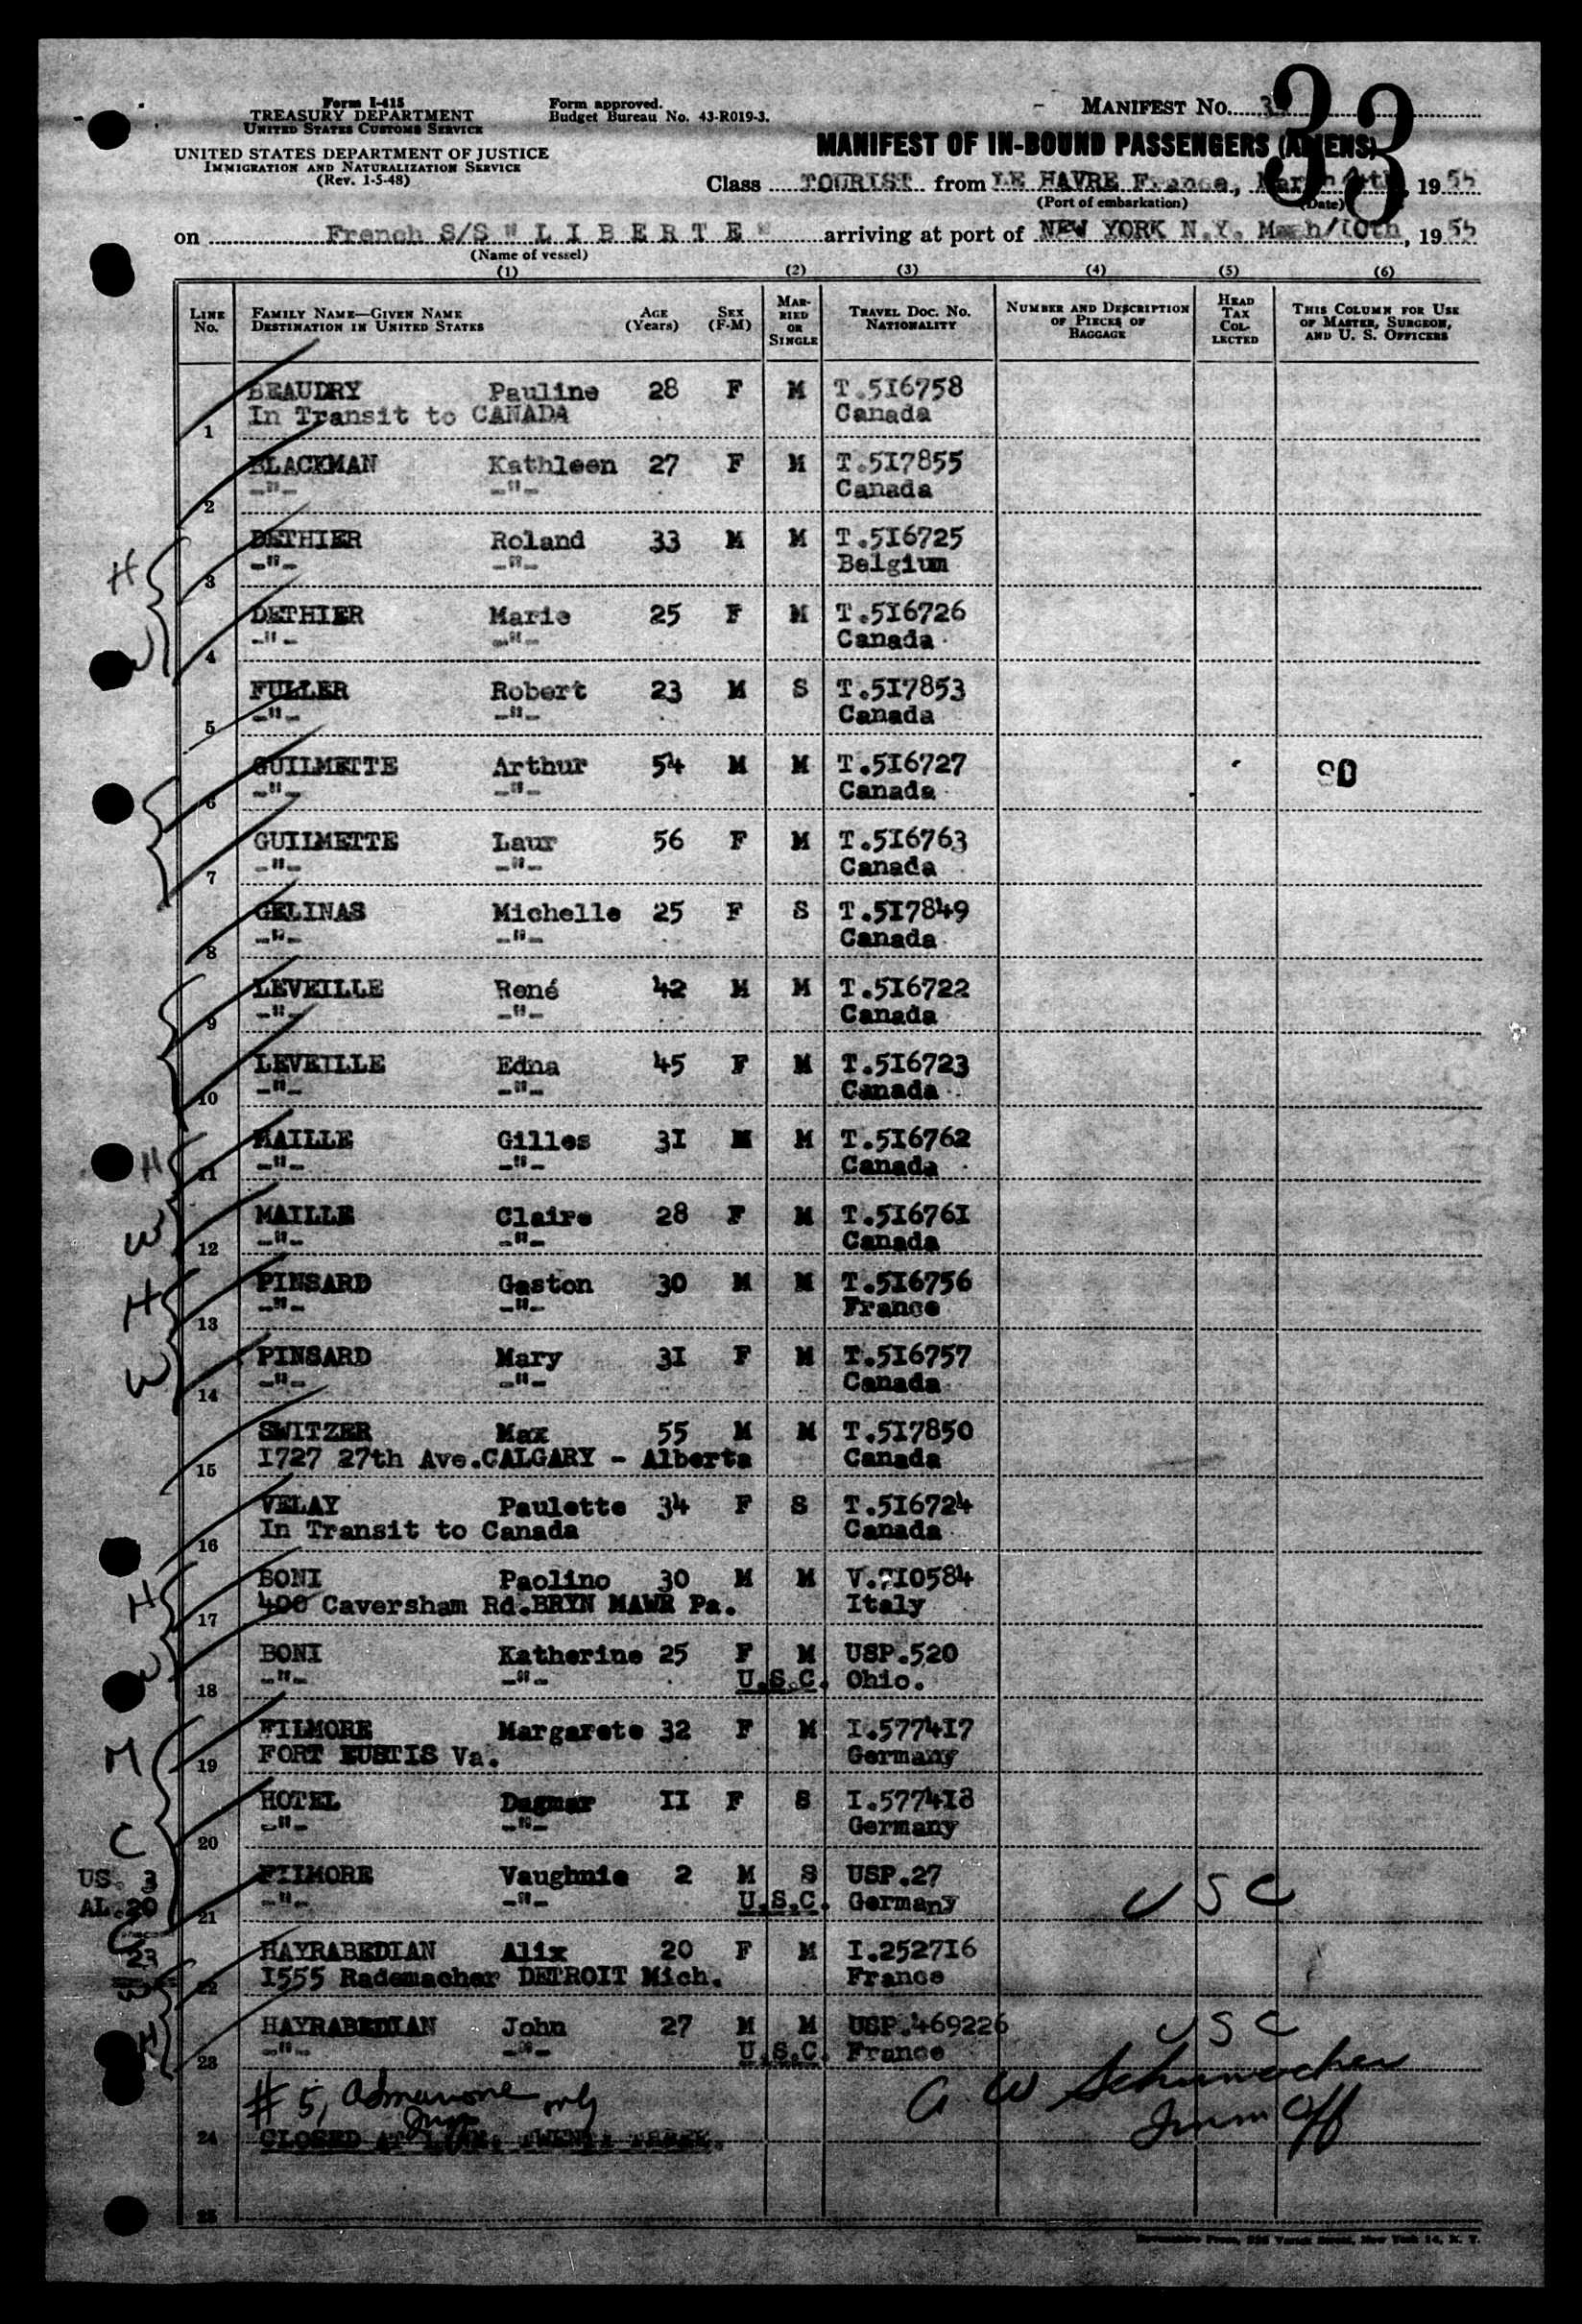 Form I-415
TREASURY DEPARTMENT
UNITED STATES CUSTOMS SERVICE
UNITED STATES DEPARTMENT OF JUSTICE
IMMIGRATION AND NATURALIZATION SERVICE
(Rev. 1-5-48)
Form approved.
Budget Bureau No. 43-R019-3.
MANIFEST No.
33
MANIFEST OF IN-BOUND PASSENGERS (ALIENS)
Class TOURIST from LE HAVRE France, March 4th, 1955
(Port of embarkation) (Date)
on French S/S " L I B E R T E " arriving at port of NEW YORK N.Y. March/10th, 1955
(Name of vessel)
(1) (2) (3) (4) (5) (6)
LINE No. FAMILY NAME—GIVEN NAME DESTINATION IN UNITED STATES AGE (Years) SEX (F-M) MARRIED OR SINGLE TRAVEL DOC. NO. NATIONALITY NUMBER AND DESCRIPTION OF PIECES OF BAGGAGE HEAD TAX COLLECTED THIS COLUMN FOR USE OF MASTER, SURGEON, AND U. S. OFFICERS
BEAUDRY Pauline 28 F M T.5I6758
1 In Transit to CANADA Canada
BLACKMAN Kathleen 27 F M T.5I7855
2 -"- -"- Canada
H DETHIER Roland 33 M M T.5I6725
3 -"- -"- Belgium
DETHIER Marie 25 F M T.5I6726
W 4 -"- -"- Canada
FULLER Robert 23 M S T.5I7853
5 -"- -"- Canada
GUILMETTE Arthur 54 M M T.5I6727
6 -"- -"- Canada
GUILMETTE Laur 56 F M T.5I6763
7 -"- -"- Canada
GELINAS Michelle 25 F S T.5I7849
8 -"- -"- Canada
LEVEILLE René 42 M M T.5I6722
9 -"- -"- Canada
LEVEILLE Edna 45 F M T.5I6723
10 -"- -"- Canada
MAILLE Gilles 3I M M T.5I6762
H 11 -"- -"- Canada
MAILLE Claire 28 F M T.5I676I
W 12 -"- -"- Canada
PINSARD Gaston 30 M M T.5I6756
H 13 -"- -"- France
PINSARD Mary 3I F M T.5I6757
W 14 -"- -"- Canada
SWITZER Max 55 M M T.5I7850
15 I727 27th Ave.CALGARY - Alberta Canada
VELAY Paulette 34 F S T.5I6724
16 In Transit to Canada Canada
BONI Paolino 30 M M
H 17 400 Caversham Rd.BRYN MAWR Pa. Italy
BONI Katherine 25 F M USP.520
W 18 -"- -"- U.S.C. Ohio.
FILMORE Margarete 32 F M I.5774I7
M 19 FORT EUSTIS Va. Germany
HOTEL Dagmar II F S I.5774I8
C 20 -"- -"- Germany
US. 3 FILMORE Vaughnie 2 M S USP.27
AL.20 21 -"- -"- U.S.C. Germany U S C
C
23 HAYRABEDIAN Alix 20 F M I.2527I6
W 22 I555 Rademacher DETROIT Mich. France
HAYRABEDIAN John 27 M M USP.469226 U S C
H 23 -"- -"- U.S.C. France
A W Schumacher
# 5, only
Imm Off
24 CLOSED AT LINE TWENTY THREE.
25